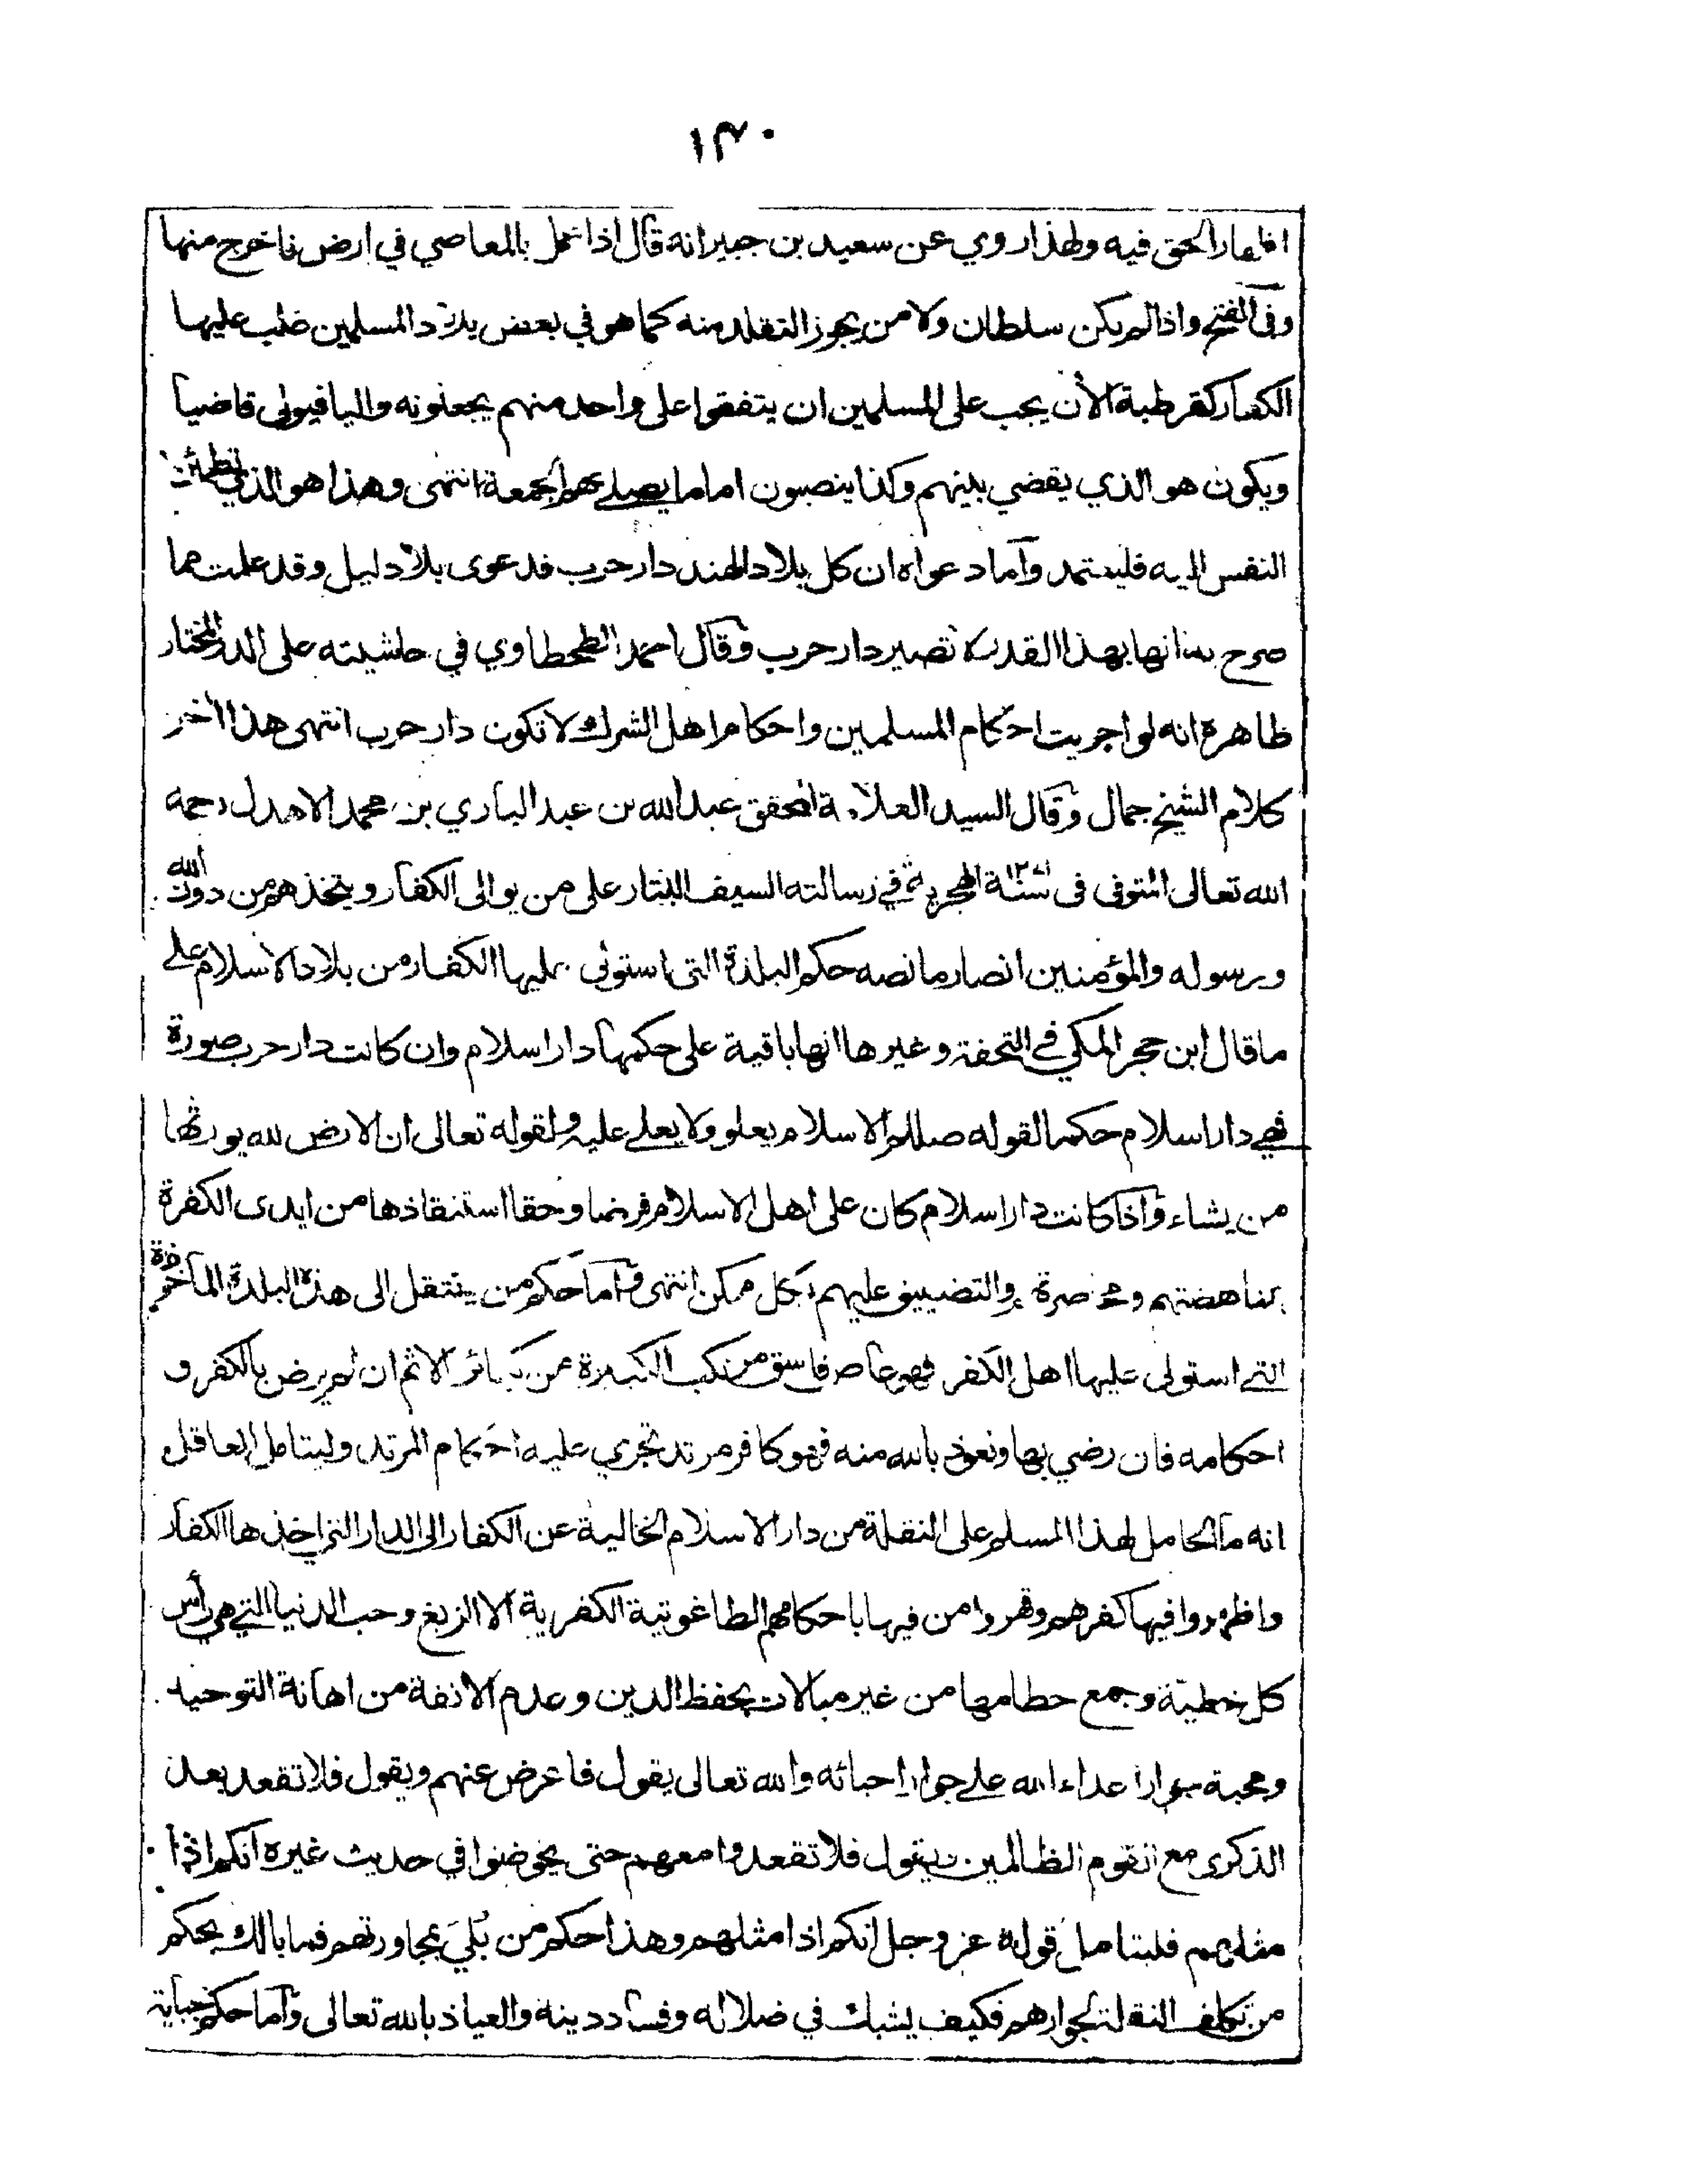 ١٣٠
اظهار الحق فيه ولهذا روي عن سعيد بن جبير انه قال اذا عمل بالمعاصي في ارض فاخرج منها
وفى الفتح واذا لم يكن سلطان ولا من يجوز التقلد منه كما هو في بعض بلاد المسلمين غلب عليها
الكفار كقرطبة الأن يجب على المسلمين ان يتفقوا على واحد منهم يجعلونه واليا فيولى قاضيا
ويكون هو الذي يقضي بينهم وكذا ينصبون اماما يصلے بهم الجمعة انتهى وهذا هو الذي تطمئن
النفس اليه فليعتمد وآما دعواه ان كل بلاد الهند دار حرب فدعوى بلا دليل وقد علمت مما
صرح به انها بهذا القدر لا تصير دار حرب وقال احمد الطحطاوي في حاشيته على الدر المختار
ظاهره انه لو اجريت احكام المسلمين واحكام اهل الشرك لا تكون دار حرب انتهى هذا اٰخر
كلام الشيخ جمال وقال السيد العلامة المحقق عبد الله بن عبد الباري بن محمد الاهدل رحمه
الله تعالى المتوفى فى سنة الهجرية في رسالته السيف البتار على من يوالى الكفار ويتخذهم من دون الله
ورسوله والمؤمنين انصار ما نصه حكم البلدة التى استولى عليها الكفار من بلاد الاسلام علے
ما قال ابن حجر المكي في التحفة وغيرها انها باقية على حكمها دار اسلام وان كانت دار حرب صورة
فهي دار اسلام حكما لقوله صللم الاسلام يعلو ولا يعلے عليه ولقوله تعالى ان الارض لله يورثها
من يشاء واذا كانت دار اسلام كان على اهل الاسلام فرضا وحقا استنقاذها من ايدى الكفرة
بمناهضتهم والتضييق عليهم بكل ممكن انتهى وآما حكم من ينتقل الى هذه البلدة المأخوذة
التے استولى عليها اهل الكفر فهو عاص فاسق مرتكب الكبيرة من كبائر الاثم ان لم يرض بالكفر و
احكامه فان رضي بها ونعوذ بالله منه فهو كافر مرتد تجري عليه احكام المرتد وليتامل العاقل
انه ما الحامل لهذا المسلم على النقلة من دار الاسلام الخالية عن الكفار الى الدار التي اخذها الكفار
واظهروا فيها كفرهم وقهروا من فيها باحكامهم الطاغوتية الكفرية الا الزيغ وحب الدنيا التي هي رأس
كل خطيئة وجمع حطامها من غير مبالات بحفظ الدين وعدم الانفة من اهانة التوحيد
ومحبة جوار اعداء الله علے جوار احبائه والله تعالى يقول فاعرض عنهم ويقول فلا تقعد بعد
الذكرى مع القوم الظالمين ويقول فلا تقعدوا معهم حتى يخوضوا في حديث غيره انكم اذا
مثلهم فليتامل قوله عز وجل انكم اذا مثلهم وهذا حكم من بُلي بمجاورتهم فما بالك بحكم
من تكلف النقلة لجوارهم فكيف يشك في ضلاله وفساد دينه والعياذ بالله تعالى وآما حكم جباية